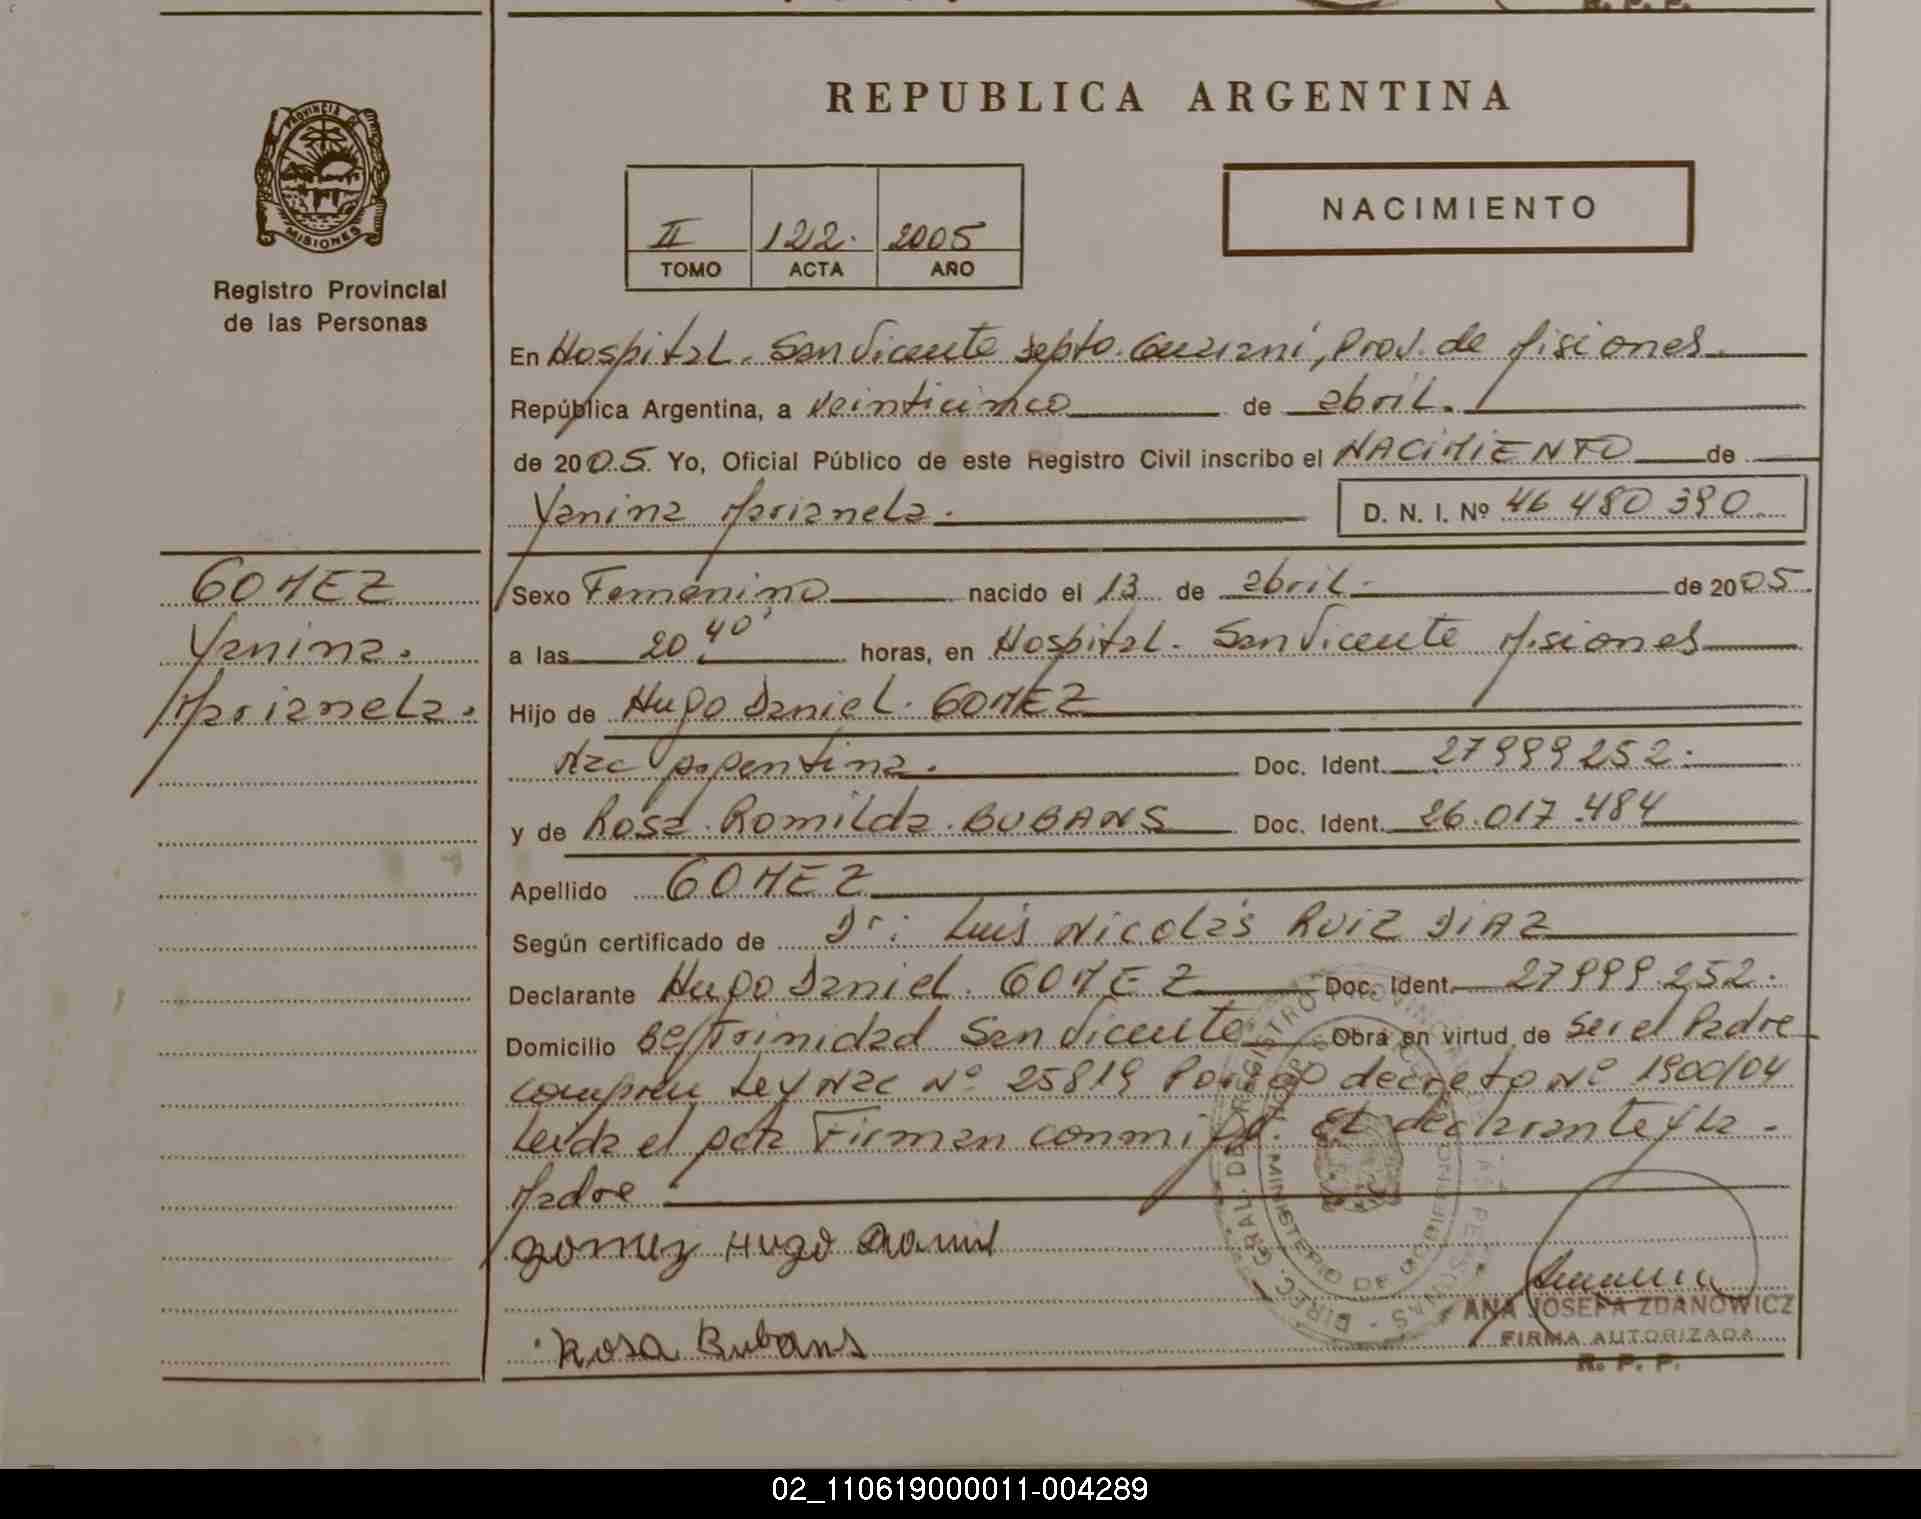 R. P. P.
REPUBLICA ARGENTINA
PROVINCIA DE
MISIONES
Registro Provincial
de las Personas
II 122. 2005
TOMO ACTA AÑO
NACIMIENTO
En Hospital. San Vicente Depto. Guaraní, Prov. de Misiones.
República Argentina, a Veinticinco de abril.
de 2005. Yo, Oficial Público de este Registro Civil inscribo el NACIMIENTO de
Yanina Marianela. D. N. I. Nº 46 480 390
GOMEZ
Yanina.
Marianela.
Sexo Femenino nacido el 13 de abril. de 2005.
a las 20 40' horas, en Hospital. San Vicente Misiones
Hijo de Hugo Daniel. GOMEZ
Nac Argentina. Doc. Ident. 27999252.
y de Rosa. Romilda. BUBANS Doc. Ident. 26.017.484
Apellido GOMEZ
Según certificado de Dr: Luis Nicolás RUIZ DIAZ
Declarante Hugo Daniel. GOMEZ Doc. Ident. 27999.252.
Domicilio Bº Trinidad San Vicente Obra en virtud de Ser el Padre
Ley Nac Nº 25819 decreto Nº 1900/04
Leída el acta Firman conmigo. El declarante y la
Madre
GOMEZ Hugo Daniel
Rosa Bubans
DIREC. GRAL. DEL REGISTRO PROVINCIAL DE LAS PERSONAS
MINISTERIO DE GOBIERNO
ANA JOSEFA ZDANOWICZ
FIRMA AUTORIZADA
R. P. P.
02_110619000011-004289